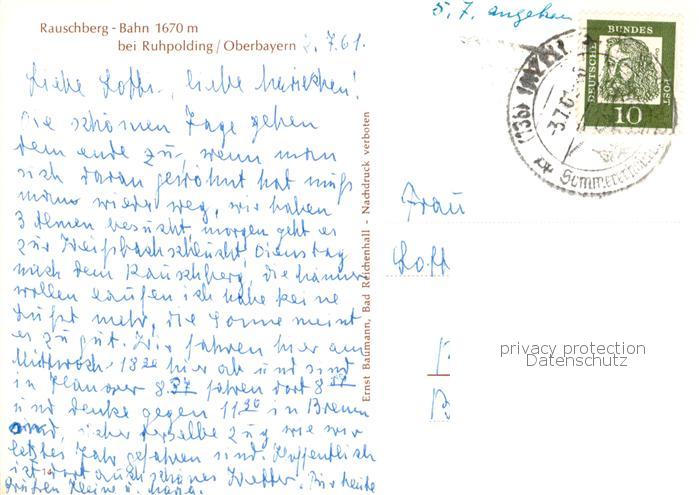 Rauschberg - Bahn 1670 m
bei Ruhpolding / Oberbayern
2.7.61.
Liebe Lotte, liebe
Die schönen Tage gehen
dem ende zu, wenn man
sich daran gewöhnt hat muß
man wieder weg, wir haben
3 Almen besucht morgen geht es
zur Weißbachschlucht, Dienstag
nach dem Rauschberg, die Männer
wollen laufen ich habe keine
Lust mehr, die Sonne meint
es zu gut. Wir fahren hier am
Mittwoch 18 30 hier ab und sind
in Hanover 8. 27 fahren dort 8
und denke gegen 11 30 in Bremen
derselbe Zug wie wir
letztes Jahr gefahren sind. Hoffentlich
ist dort auch schönes Wetter. Für heute
Grüßen Heine u.
Ernst Baumann, Bad Reichenhall - Nachdruck verboten
5. 7. angekom
DEUTSCHE BUNDES POST
10
(13b)
-3.7.61
Sommer
Frau
Lott
privacy protection
Datenschutz